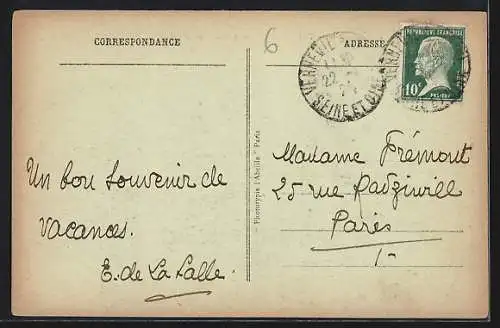 CORRESPONDANCE
6
ADRESSE
VERNEUIL
22
SEINE ET OISE
REPUBLIQUE FRANÇAISE
10c
PASTEUR
Madame Frémont
25 rue Radziwill
Paris
1-
Un bon souvenir de
vacances.
E. de La Salle.
Phototypie l'Abeille Paris